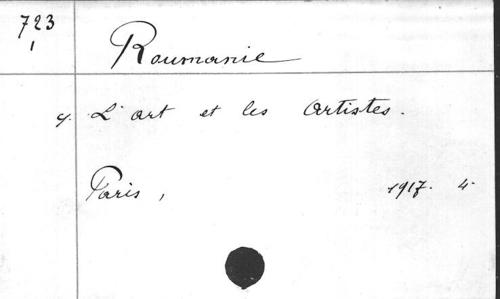 723
1
Roumanie
cf. L'art et les artistes.
Paris, 1917. 4°